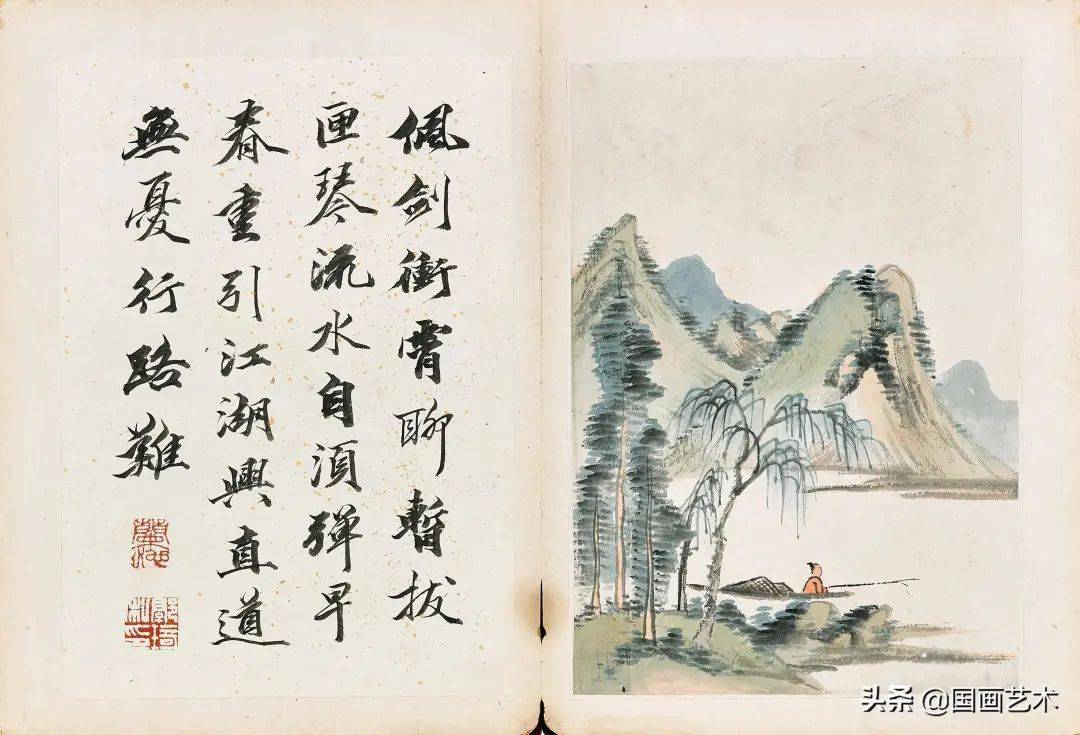 佩劍衝霄聊暫拔
匣琴流水自須彈早
春重引江湖興直道
無憂行路難
头条 @国画艺术